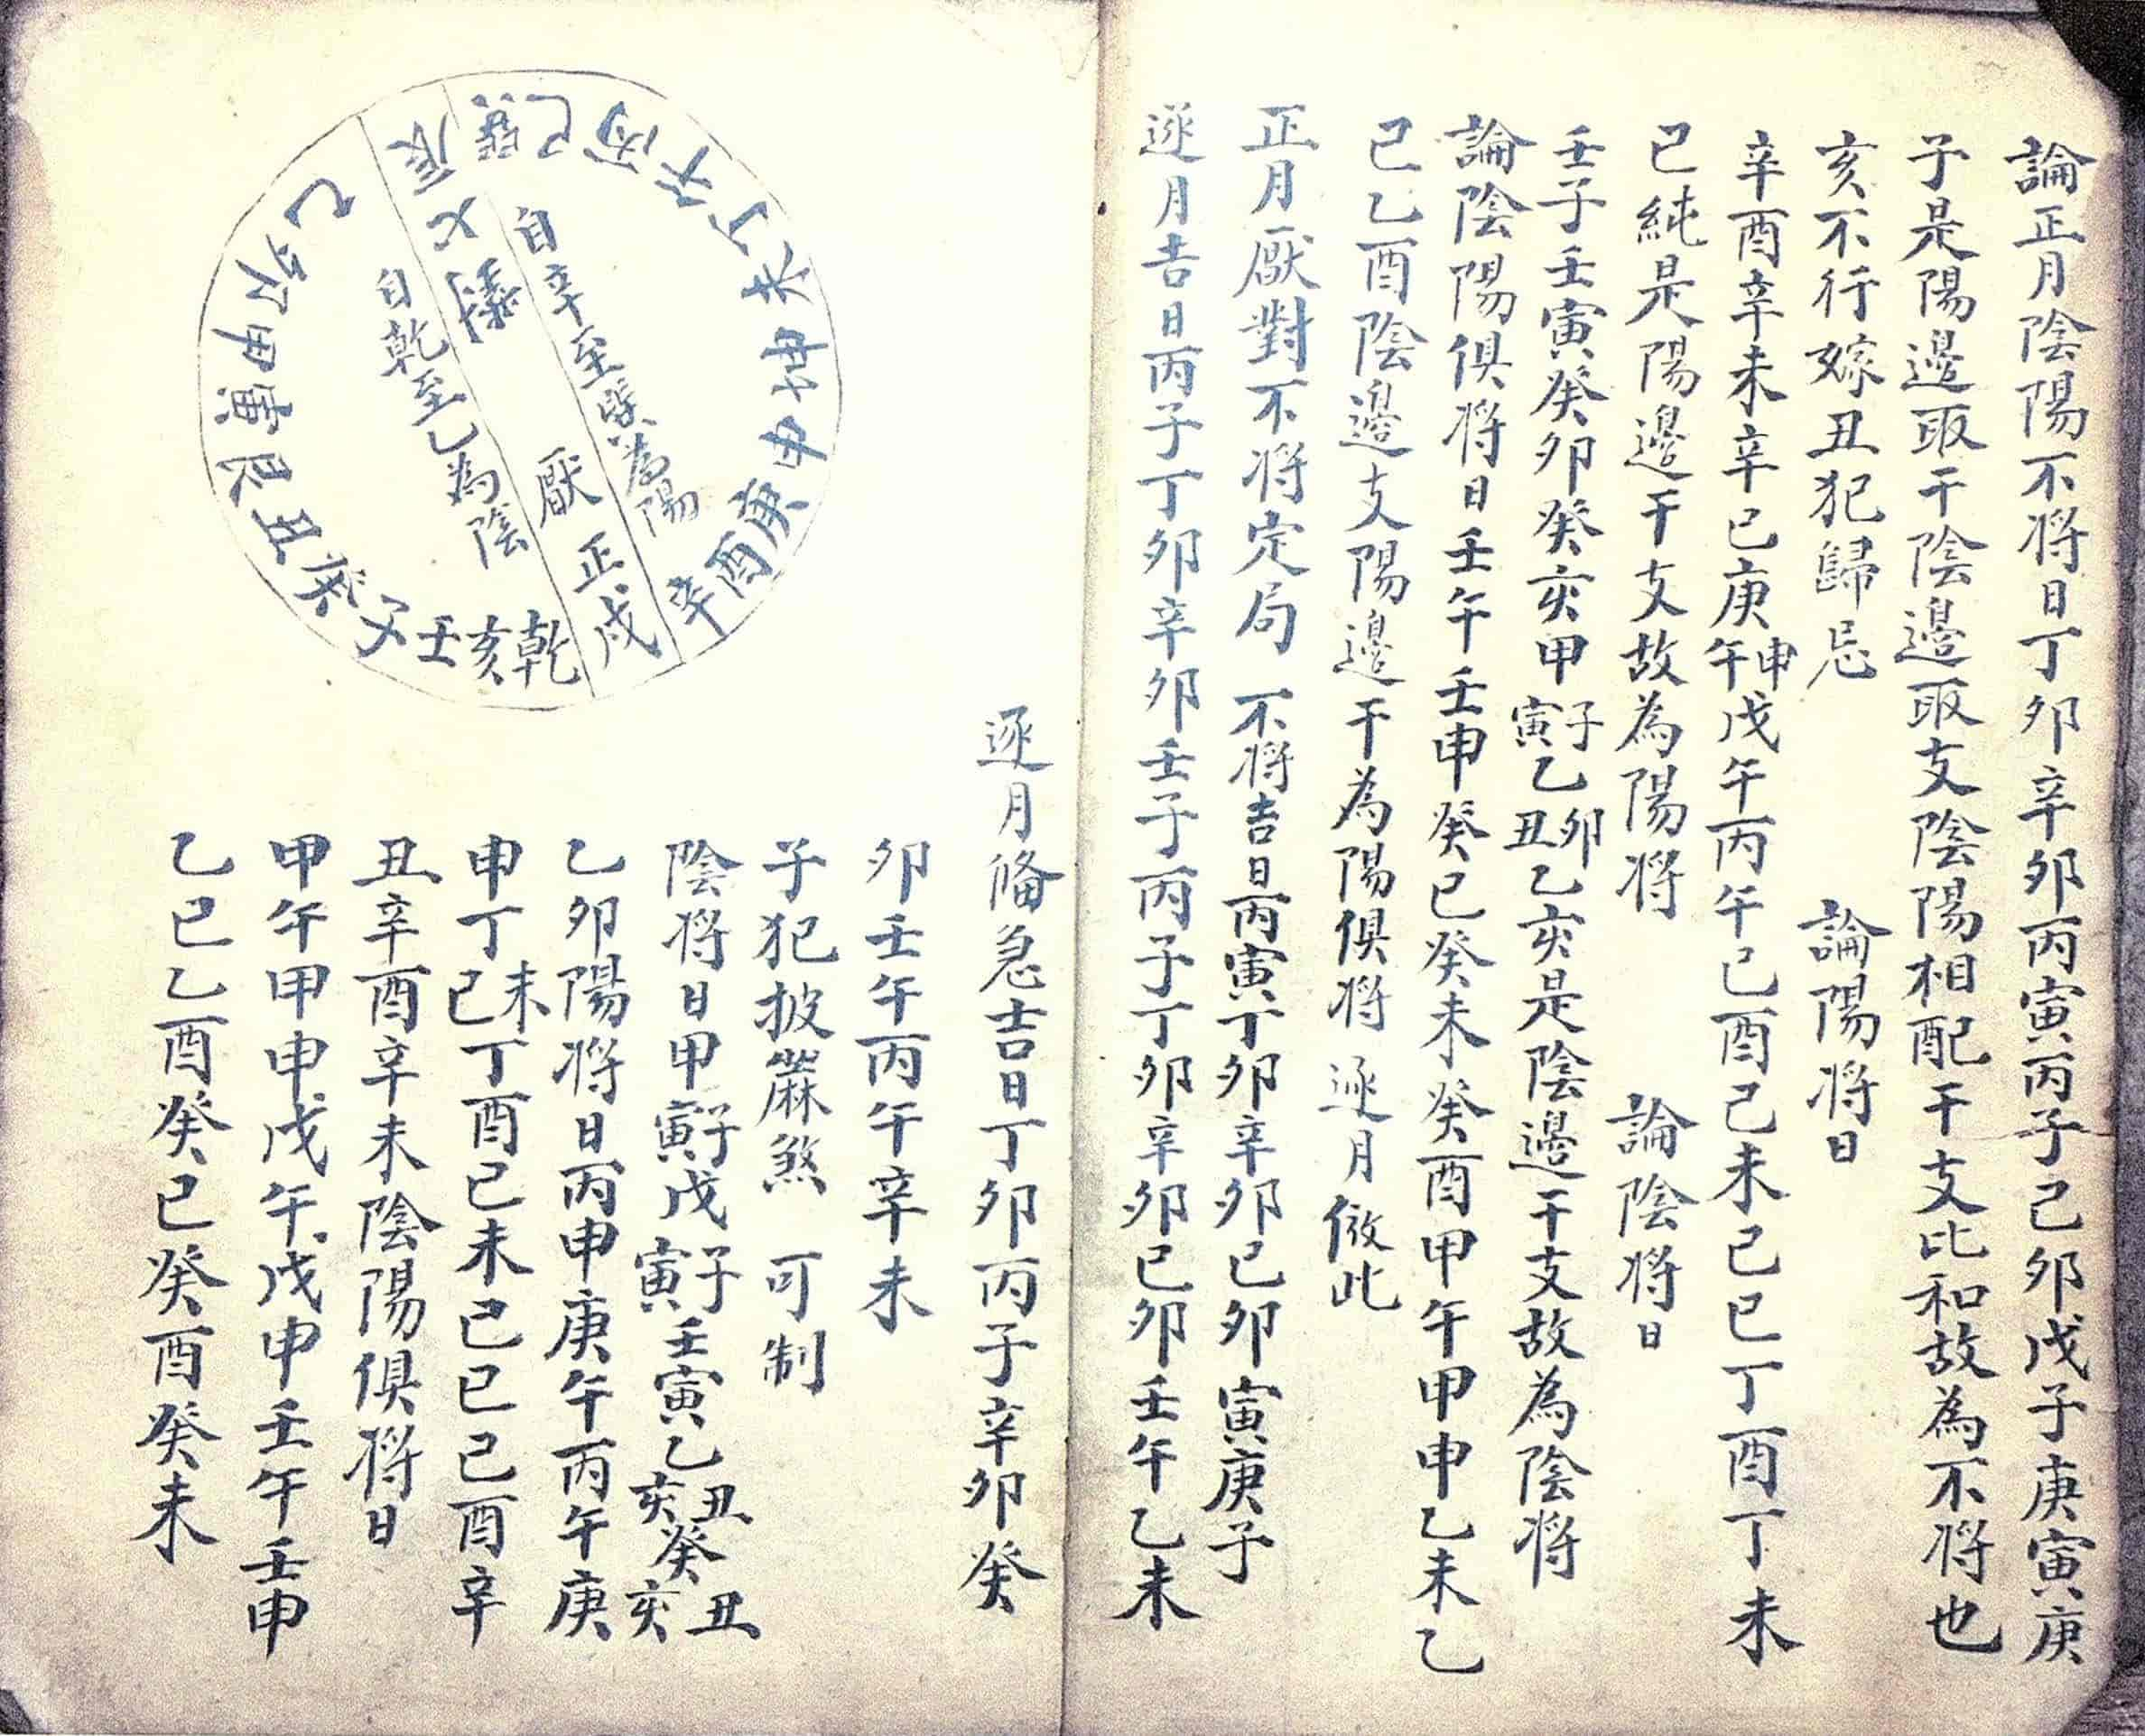 論正月陰陽不将日丁卯辛卯丙寅丙子己卯戊子庚寅庚
子是陽邊取干陰邊取支陰陽相配干支比和故為不将也
亥不行嫁丑犯歸忌
論陽将日
辛酉辛未辛巳庚午申戊午丙午己酉己未己巳丁酉丁未
巳純是陽邊干支故為陽将
論陰将日
壬子壬寅癸卯癸亥甲寅子乙丑卯乙亥是陰邊干支故為陰将
論陰陽俱将日壬午壬申癸巳癸未癸酉甲午甲申乙未乙
巳乙酉陰邊支陽邊干為陽俱将
逐月倣此
正月厭對不将定局
不将吉日丙寅丁卯辛卯己卯寅庚子
逐月吉日丙子丁卯辛卯壬子丙子丁卯辛卯己卯壬午乙未
逐月俻急吉日丁卯丙子辛卯癸
卯壬午丙午辛未
子犯披蔴煞
可制
陰将日甲寅子戊寅子壬寅乙亥丑癸亥丑
乙卯陽将日丙申庚午丙午庚
申丁巳未丁酉己未己巳己酉辛
丑辛酉辛未陰陽俱将日
甲午甲申戊午戊申壬午壬申
乙巳乙酉癸巳癸酉癸未
辛酉庚申坤未丁午丙巳巽
辰
乙卯甲寅艮丑癸子壬亥乾
正戌
厭
自辛至巽為陽
自乾至乙為陰